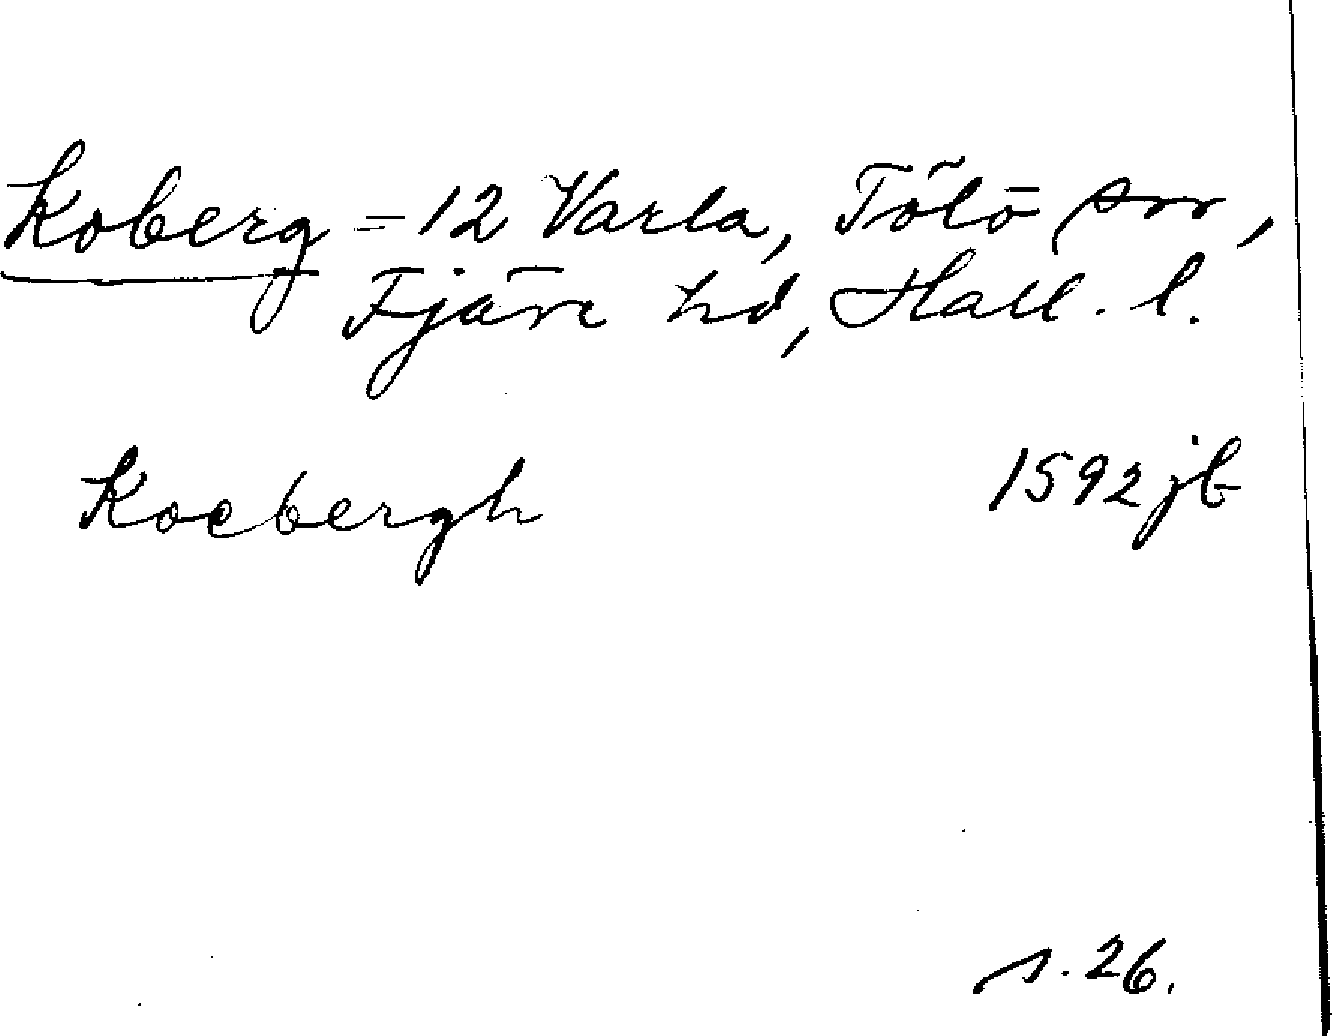 Koberg = 12 Varla, Tölö sn,
Fjäre hd, Hall. l.
Koebergh 1592 jb
s. 26.